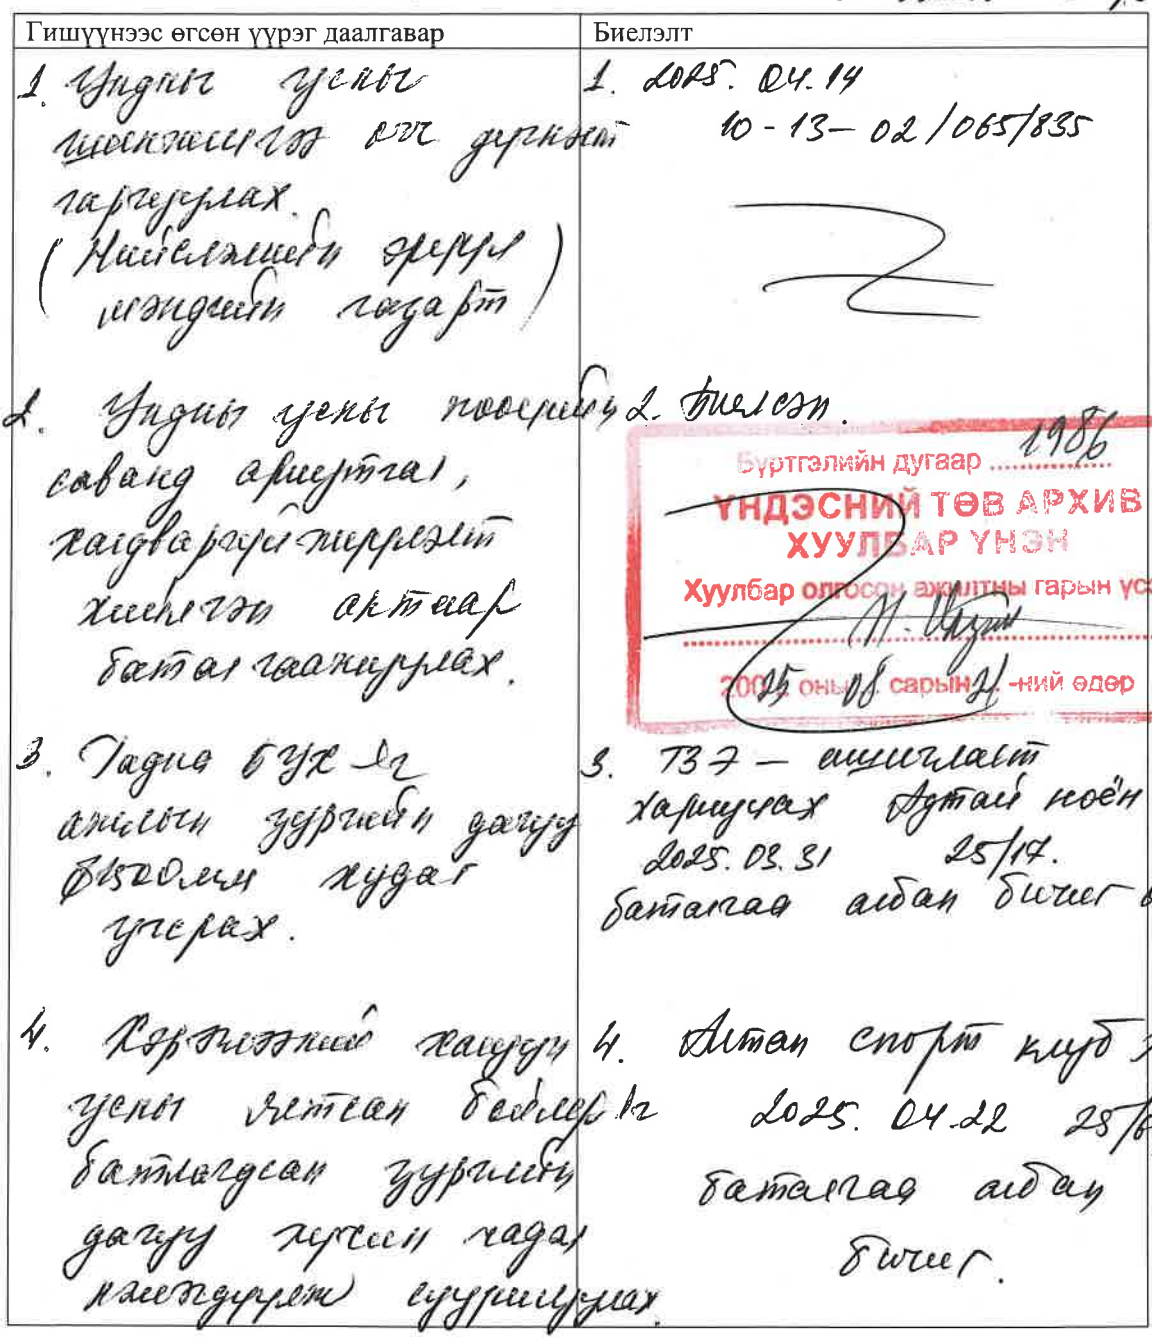 Гишүүнээс өгсөн үүрэг даалгавар
Биелэлт
1. Ундны усны
шинжилгээ өгч дүгнэлт
гаргуулах.
(Нийслэлийн эрүүл
мэндийн газарт)
1. 2025. 04.14
10-13-02/065/835
2. Ундны усны нөөцийн
саванд ариутгал,
халдваргүйжүүлэлт
хийлгэн актаар
баталгаажуулах.
2. Биелсэн.
Бүртгэлийн дугаар 1986
ҮНДЭСНИЙ ТӨВ АРХИВ
ХУУЛБАР ҮНЭН
Хуулбар олгосон ажилтны гарын үс
2025 оны 08 сарын 21 -ний өдөр
3. Гадна БУХ-ыг
ажлын зургийн дагуу
ф1500мм худаг
угсрах.
3. ТЗЭ - ашиглалт
хариуцах Алтай ноён
2025.03.31 25/17.
баталгаа албан бичиг
4. Хэрэгцээний халуун
усны бойлерыг
батлагдсан зургийн
дагуу хүчин чадал
нэмэгдүүлж суурилуулах.
4. Алтан спорт клуб
2025. 04.22 25/
баталгаа албан
бичиг.